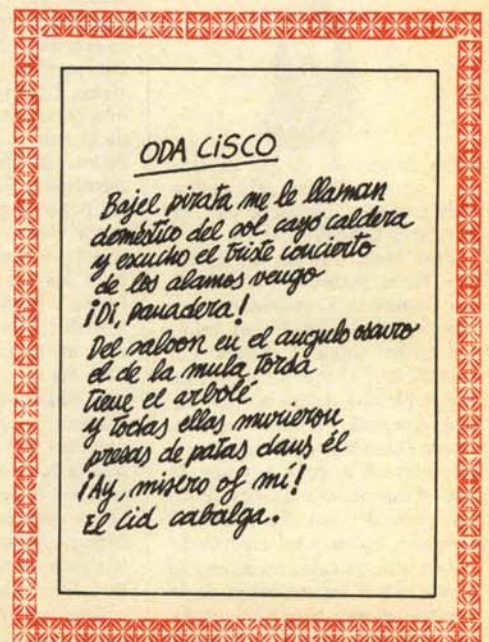 ODA CiSCO
Bajel pirata me le llaman
doméstico del sol cayó caldera
y excucho el triste concierto
de los alamos vengo
¡Di, panadera!
Del saloon en el angulo oscuro
el de la mula torda
tiene el arbolé
y todas ellas murieron
presas de patas dans él
¡Ay, misero of mí!
El Cid cabalga.